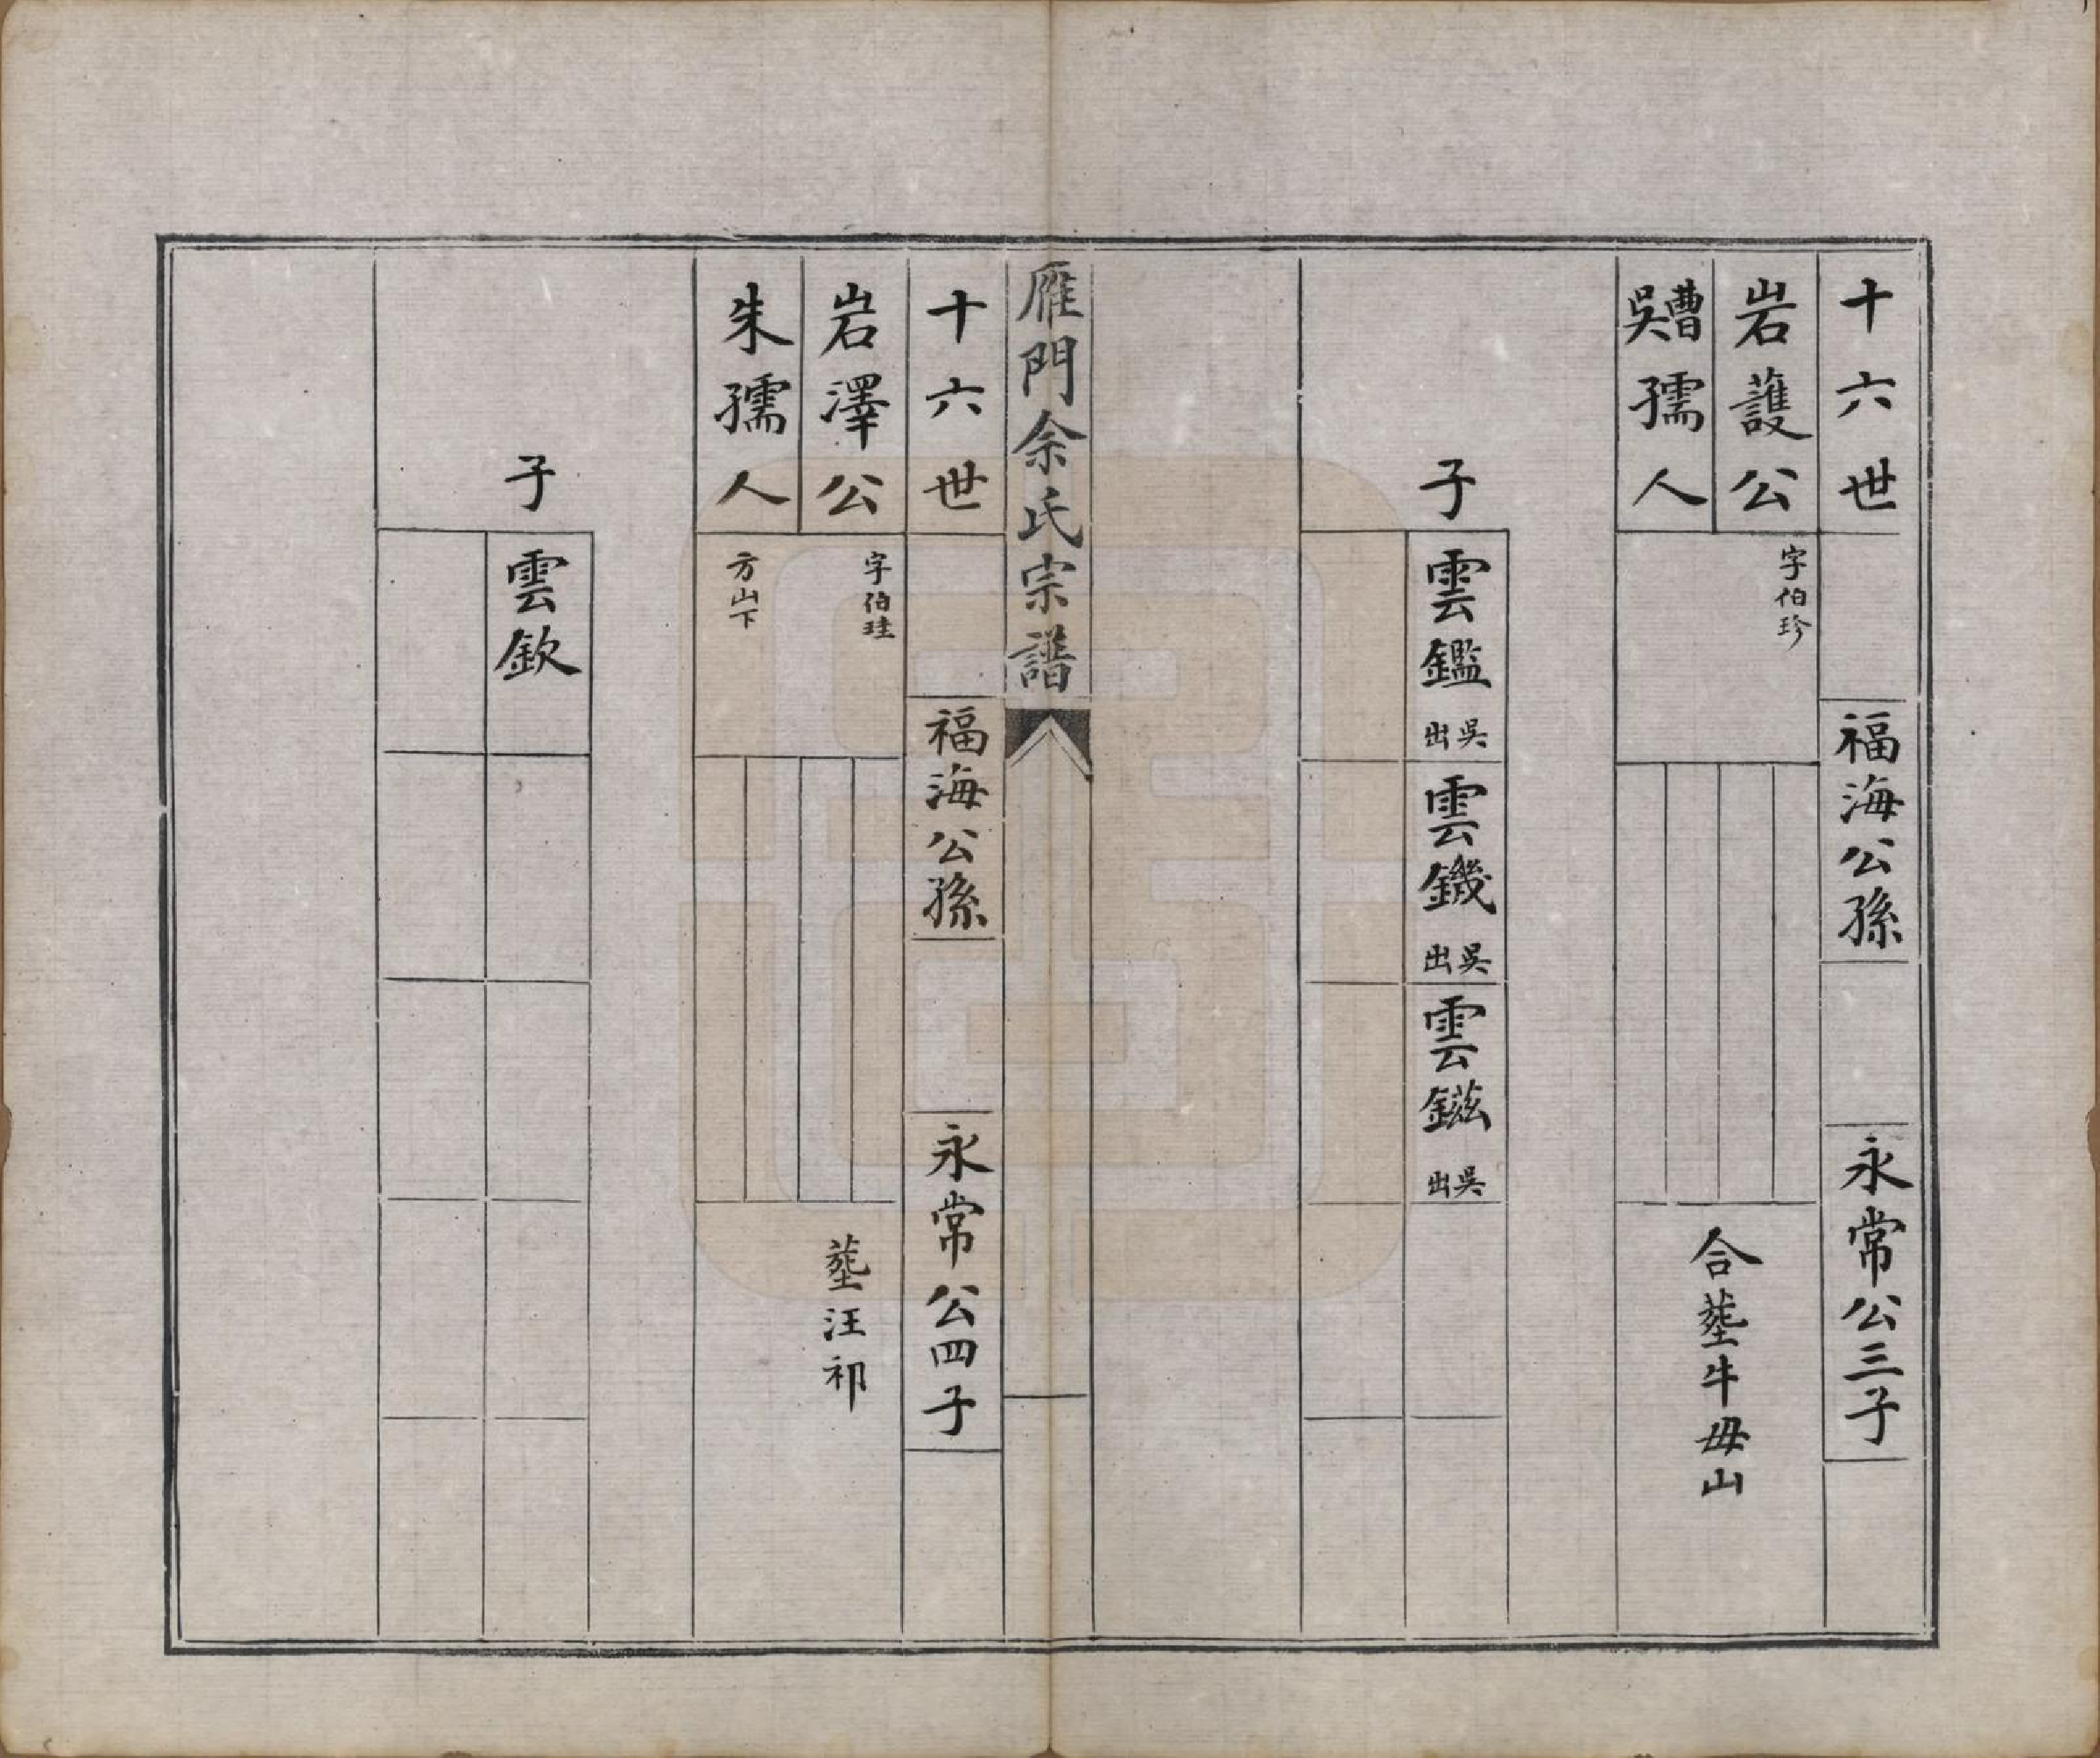 十六世
福海公孫
永常公三子
岩護公
字伯珍
曹吳孺人
合塟牛毋山
子
雲鑑
吳出
雲鐖
吳出
雲鎡
吳出
雁門余氏宗譜
十六世
福海公孫
永常公四子
岩澤公
字伯珪
塟汪祁
朱孺人
方山下
子
雲欽